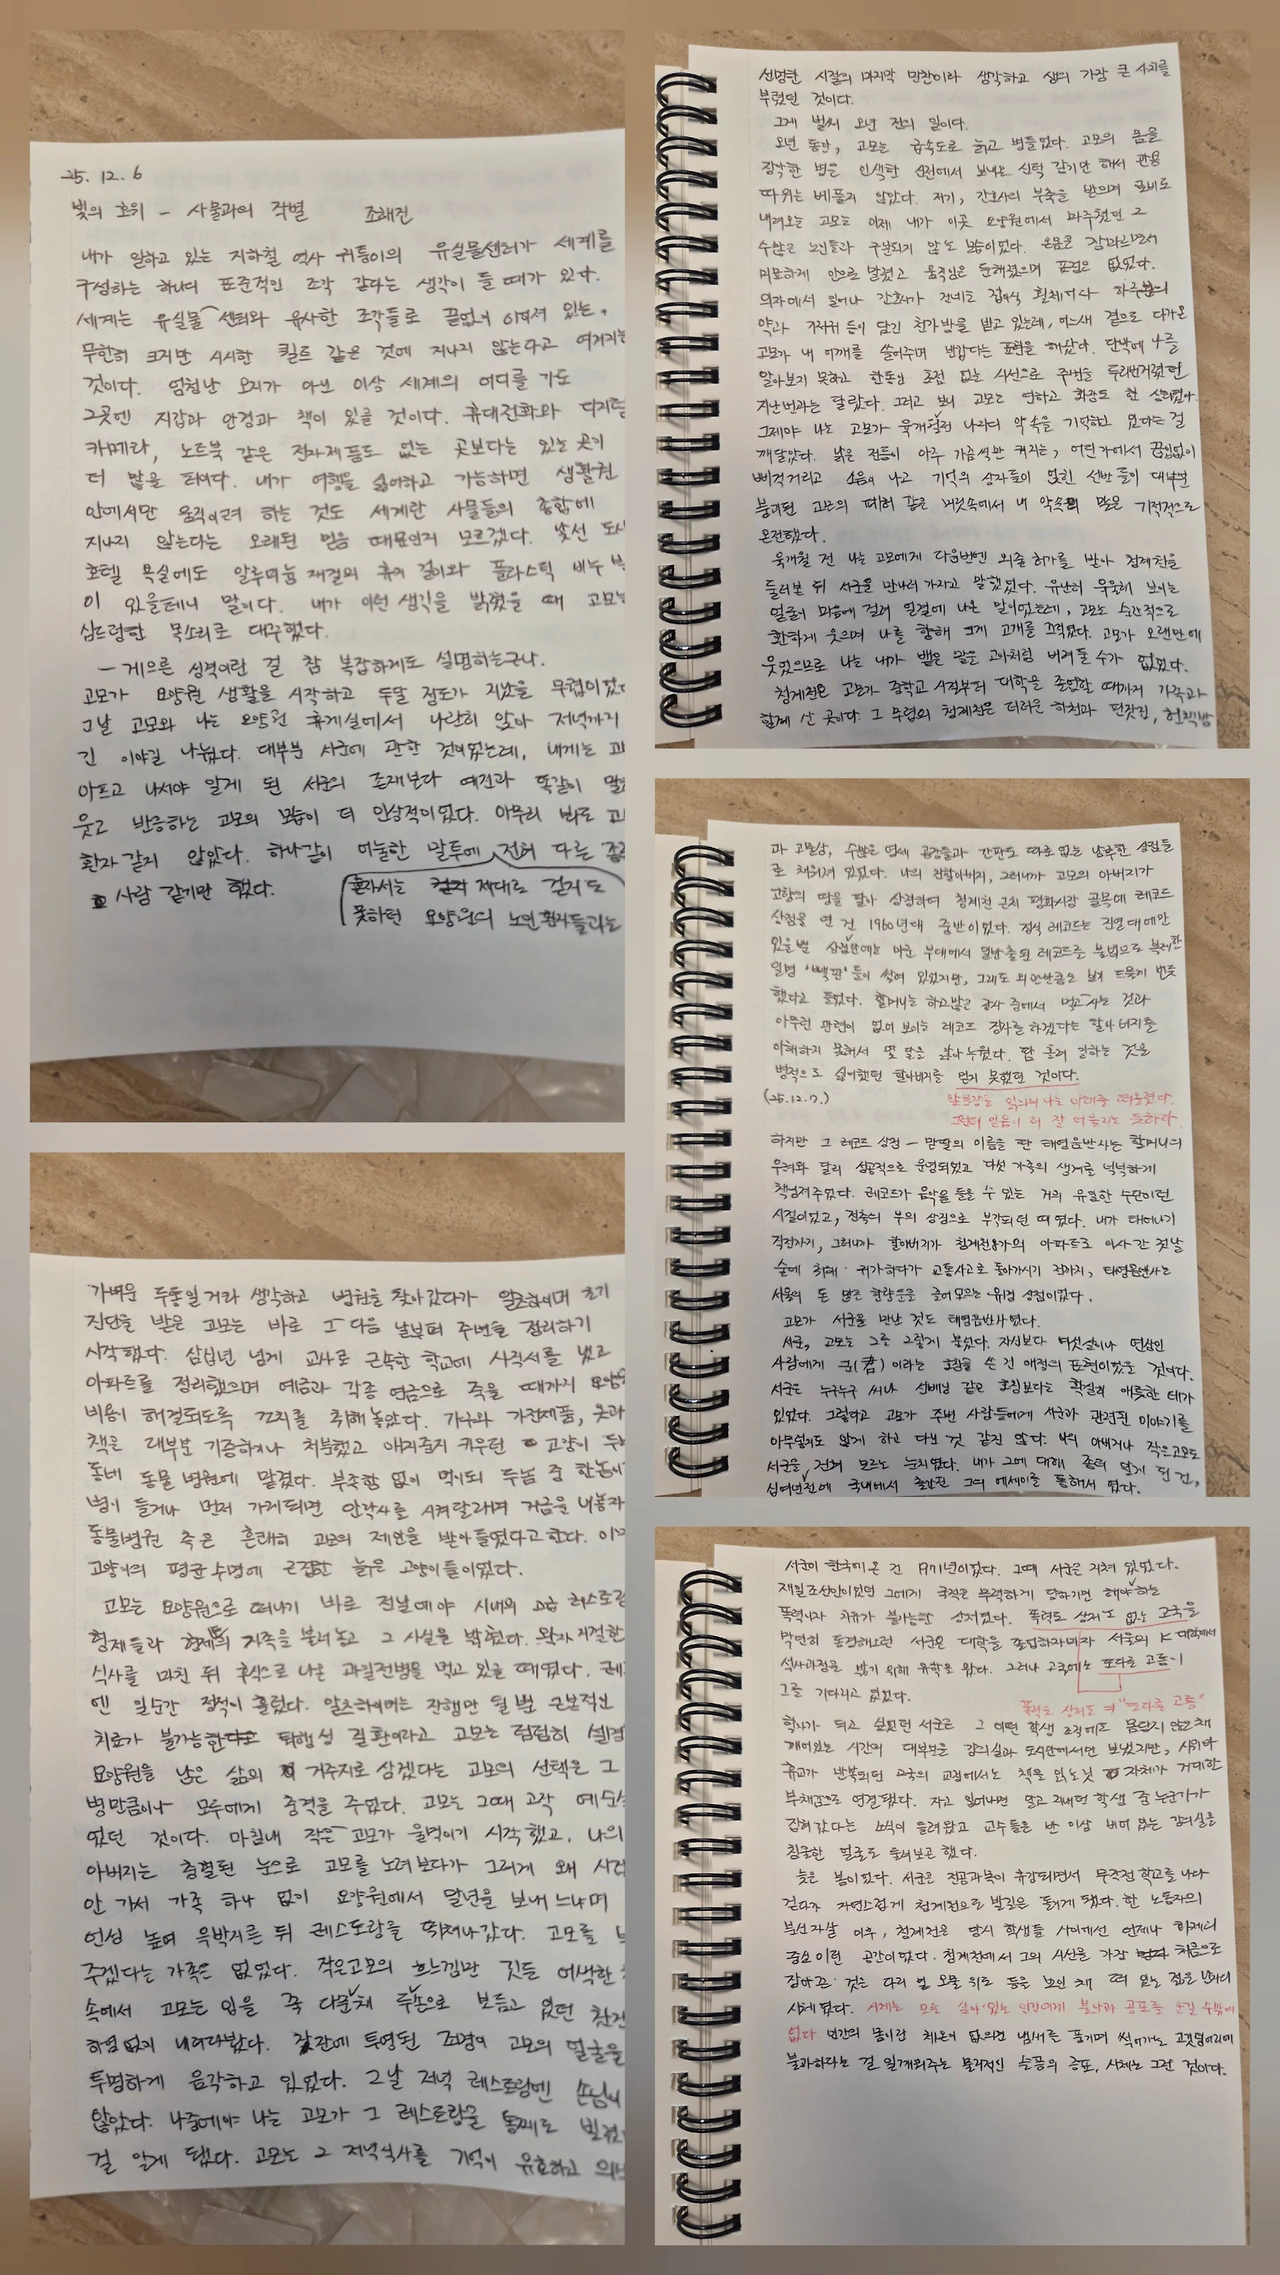 25. 12. 6
빛의 호위 - 사물과의 작별 조해진
내가 일하고 있는 지하철 역사 귀퉁이의 유실물센터가 세계를
구성하는 하나의 표준적인 조각 같다는 생각이 들 때가 있다.
세계는 유실물센터와 유사한 조각들로 끝없이 이어져 있는,
무한히 크지만 시시한 퀼트 같은 것에 지나지 않는다고 여겨지는
것이다. 엄청난 오지가 아닌 이상 세계의 어디를 가도
그곳엔 지갑과 안경과 책이 있을 것이다. 휴대전화와 디지털
카메라, 노트북 같은 전자제품도 없는 곳보다는 있는 곳이
더 많을 터이다. 내가 여행을 싫어하고 가능하면 생활권
안에서만 움직이려 하는 것도 세계란 사물들의 총합에
지나지 않는다는 오래된 믿음 때문인지 모르겠다. 낯선 도시
호텔 욕실에도 알루미늄 재질의 휴지 걸이와 플라스틱 비누
이 있을테니 말이다. 내가 이런 생각을 밝혔을 때 고모는
심드렁한 목소리로 대꾸했다.
- 게으른 성격이란 걸 참 복잡하게도 설명하는구나.
고모가 요양원 생활을 시작하고 두달 정도가 지났을 무렵이었다
그날 고모와 나는 요양원 휴게실에서 나란히 앉아 저녁까지
긴 이야길 나눴다. 대부분 서군에 관한 것이었는데, 내게는 고
아프고 나서야 알게 된 서군의 존재보다 예전과 똑같이 말하
웃고 반응하는 고모의 모습이 더 인상적이었다. 아무리 봐도 고
환자 같지 않았다. 하나같이 어눌한 말투에, 전혀 다른 종
사람 같기만 했다. 혼자서는 제대로 걷지도
못하던 요양원의 노인 환자들과는
가벼운 두통일 거라 생각하고 병원을 찾아갔다가 알츠하이머 초기
진단을 받은 고모는 바로 그 다음 날부터 주변을 정리하기
시작했다. 삼십년 넘게 교사로 근속한 학교에 사직서를 냈고
아파트를 정리했으며 예금과 각종 연금으로 죽을 때까지 요양원
비용이 해결되도록 조치를 취해 놓았다. 가구와 가전제품, 옷과
책은 대부분 기증하거나 처분했고 애지중지 키우던 고양이 두
동네 동물 병원에 맡겼다. 부족함 없이 먹이되 두놈 중 한놈이
병이 들거나 먼저 가게 되면 안락사를 시켜달라며 거금을 내놓자
동물병원 측은 흔쾌히 고모의 제안을 받아들였다고 한다. 이미
고양이의 평균 수명에 근접한 늙은 고양이들이었다.
고모는 요양원으로 떠나기 바로 전날에야 시내의 고급 레스토랑
형제들과 형제의 가족을 불러놓고 그 사실을 밝혔다. 왁자지껄한
식사를 마친 뒤 후식으로 나온 과일전병을 먹고 있을 때였다. 레
엔 일순간 정적이 흘렀다. 알츠하이머는 진행만 될 뿐 근본적인
치료가 불가능한 퇴행성 질환이라고 고모는 덤덤히 설명
요양원을 남은 삶의 거주지로 삼겠다는 고모의 선택은 그
병만큼이나 모두에게 충격을 주었다. 고모는 그때 고작 예순
었던 것이다. 마침내 작은고모가 울먹이기 시작했고, 나의
아버지는 충혈된 눈으로 고모를 노려보다가 그러게 왜 시집
안 가서 가족 하나 없이 요양원에서 말년을 보내느냐며
언성 높여 윽박지른 뒤 레스토랑을 뛰쳐나갔다. 고모를
주겠다는 가족은 없었다. 작은고모의 흐느낌만 깃든 어색한
속에서 고모는 입을 꾹 다문 채 두 손으로 보듬고 있던 찻잔
하염없이 내려다봤다. 찻잔에 투영된 조명이 고모의 얼굴을
투명하게 음각하고 있었다. 그날 저녁 레스토랑엔 손님이
않았다. 나중에야 나는 고모가 그 레스토랑을 통째로 빌렸
걸 알게 됐다. 고모는 그 저녁식사를 기억이 유효하고 의식
선명한 시절의 마지막 만찬이라 생각하고 생의 가장 큰 사치를
부렸던 것이다.
그게 벌써 오년 전의 일이다.
오년 동안, 고모는 급속도로 늙고 병들었다. 고모의 몸을
장악한 병은 인색한 신전에서 보내온 신탁 같기만 해서 관용
따위는 베풀지 않았다. 저기, 간호사의 부축을 받으며 로비로
내려오는 고모는 이제 내가 이곳 요양원에서 마주쳤던 그
수많은 노인들과 구분되지 않는 모습이었다. 온몸은 감파르면서
미묘하게 안으로 말렸고 움직임은 둔해졌으며 표정은 없었다.
의자에서 일어나 간호사가 건네는 접이식 휠체어와 하루분의
약과 기저귀 등이 담긴 천가방을 받고 있는데, 어느새 곁으로 다가온
고모가 내 어깨를 쓸어주며 반갑다는 표현을 해왔다. 단박에 나를
알아보지 못하고 한동안 초점 없는 시선으로 주변을 두리번거렸던
지난번과는 달랐다. 그러고 보니 고모는 연하고 화장도 한 상태였다.
그제야 나는 고모가 육개월 전 나와의 약속을 기억하고 있다는 걸
깨달았다. 낡은 전등이 아주 가끔씩만 켜지는, 어딘가에서 끊임없이
삐걱거리고 소음이 나고 기억의 상자들이 얹힌 선반들이 대부분
붕괴된 고모의 폐허 같은 머릿속에서 내 약속의 말은 기적적으로
온전했다.
육개월 전 나는 고모에게 다음번엔 외출 허가를 받아 청계천을
둘러본 뒤 서군을 만나러 가자고 말했었다. 유난히 우울해 보이는
얼굴이 마음에 걸려 얼결에 나온 말이었는데, 고모는 순간적으로
환하게 웃으며 나를 향해 크게 고개를 끄덕였다. 고모가 오랜만에
웃었으므로 나는 내가 뱉은 말을 고아처럼 버려둘 수가 없었다.
청계천은 고모가 중학교 시절부터 대학을 졸업할 때까지 가족과
함께 산 곳이다. 그 무렵의 청계천은 더러운 하천과 판잣집, 헌책방
과 고물상, 수많은 영세 공장들과 간판도 따로 없는 남루한 상점들
로 채워져 있었다. 나의 친할아버지, 그러니까 고모의 아버지가
고향의 땅을 팔아 상경하여 청계천 근처 평화시장 골목에 레코드
상점을 연 건 1960년대 중반이었다. 정식 레코드는 진열대에만
있을뿐 상점 안에는 미군 부대에서 밀반출된 레코드를 불법으로 복제한
일명 '빽판'들이 쌓여 있었지만, 그래도 외관만큼은 보기 드물게 번듯
했다고 들었다. 할머니는 하고많은 장사 중에서 먹고 사는 것과
아무런 관련이 없어 보이는 레코드 장사를 하겠다는 할아버지를
이해하지 못해서 몇 달을 앓아누웠다. 땀 흘려 일하는 것을
병적으로 싫어했던 할아버지를 믿지 못했던 것이다.
(25.12.7.) 앞문장을 읽으며 나는 이해를 떠올렸다.
그런데 믿음이 더 잘 어울리는 듯하다.
하지만 그 레코드 상점 - 맏딸의 이름을 딴 태영음반사는 할머니의
우려와 달리 성공적으로 운영되었고 다섯 가족의 생계를 넉넉하게
책임져주었다. 레코드가 음악을 들을 수 있는 거의 유일한 수단이던
시절이었고, 전축이 부의 상징으로 부각되던 때였다. 내가 태어나기
직전까지, 그러니까 할아버지가 청계천 근처의 아파트로 이사 간 첫날
술에 취해 귀가하다가 교통사고로 돌아가시기 전까지, 태영음반사는
서울의 돈 많은 한량들을 끌어모으는 유명 상점이었다.
고모가 서군을 만난 것도 태영음반사였다.
서군, 고모는 그를 그렇게 불렀다. 자신보다 여섯살이나 연상인
사람에게 군(君)이라는 호칭을 쓴 건 애정의 표현이었을 것이다.
서군은 누구누구 씨나 선배님 같은 호칭보다는 확실히 애틋한 데가
있었다. 그렇다고 고모가 주변 사람들에게 서군과 관련된 이야기를
아무렇지도 않게 하고 다닌 것 같진 않다. 나의 아버지나 작은고모도
서군을 전혀 모르는 눈치였다. 내가 그에 대해 좀더 알게 된 건,
십여년 전에 국내에서 출간된 그의 에세이를 통해서였다.
서군이 한국에 온 건 1971년이었다. 그때 서군은 지쳐 있었다.
재일조선인이었던 그에게 국적은 무력하게 당하기만 해야 하는
폭력이자 치유가 불가능한 상처였다. 폭력도 상처도 없는 고국을
막연히 동경해오던 서군은 대학을 졸업하자마자 서울의 K 대학에서
석사과정을 밟기 위해 유학을 왔다. 그러나 고국에는 또다른 고통이
그를 기다리고 있었다.
폭력도 상처도 → "또다른 고통"
학자가 되고 싶었던 서군은 그 어떤 학생 조직에도 몸담지 않은 채
깨어있는 시간의 대부분을 강의실과 도서관에서만 보냈지만, 시위와
휴교가 반복되던 고국의 교정에서는 책을 읽는 것 자체가 거대한
부채감으로 연결됐다. 자고 일어나면 알고 지내던 학생 중 누군가가
잡혀갔다는 소식이 들려왔고 교수들은 반 이상 비어 있는 강의실을
침울한 얼굴로 둘러보곤 했다.
늦은 봄이었다. 서군은 전공과목이 휴강되면서 무작정 학교를 나와
걷다가 자연스럽게 청계천으로 발길을 돌리게 됐다. 한 노동자의
분신자살 이후, 청계천은 당시 학생들 사이에선 언제나 화제의
중심이던 공간이었다. 청계천에서 그의 시선을 가장 처음으로
잡아끈 것은 다리 밑 오물 위로 등을 보인 채 떠 있는 젊은 남자의
시체였다. 시체는 모든 살아 있는 인간에게 불안과 공포를 안길 수밖에
없다. 인간의 몸이란 체온이 없으면 냄새를 풍기며 썩어가는 고깃덩어리에
불과하다는 걸 일깨워주는 물리적인 슬픔의 증표, 시체는 그런 것이다.